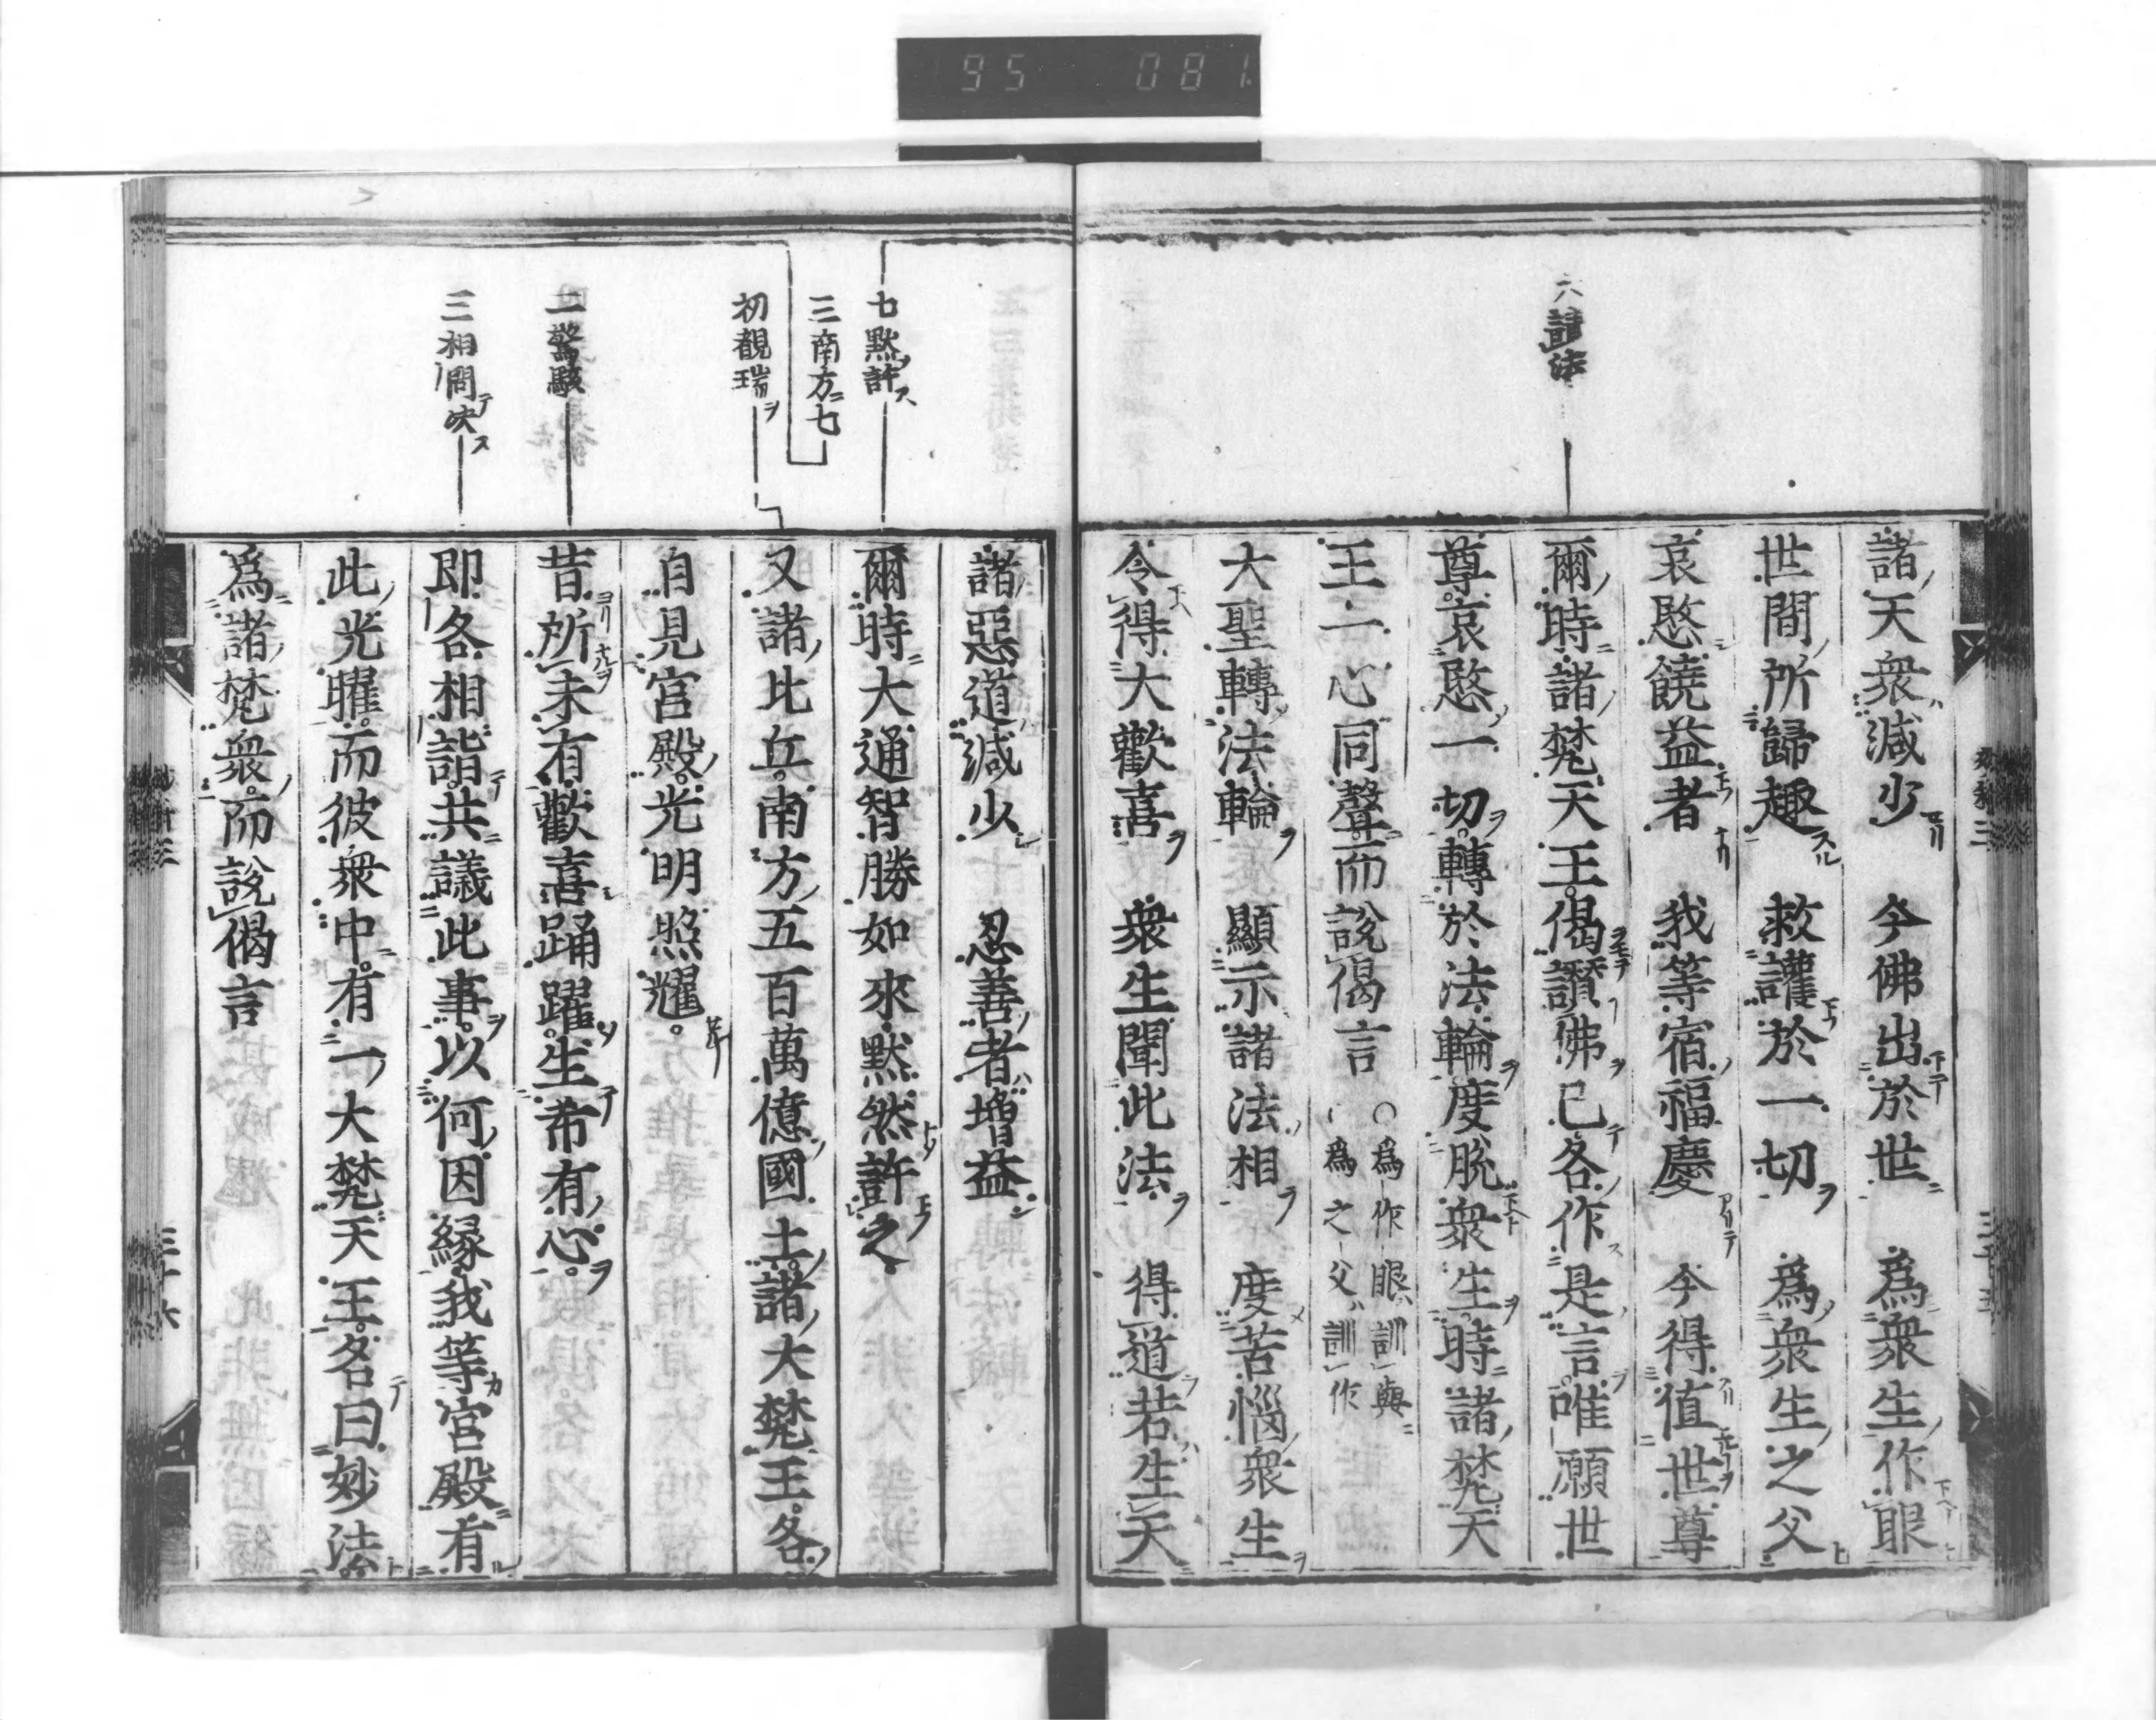 95 081
六請法
諸天衆減少　今佛出於世　爲衆生作眼
世間所歸趣　救護於一切　爲衆生之父
哀愍饒益者　我等宿福慶　今得值世尊
爾時諸梵天王偈讚佛已各作是言唯願世
尊哀愍一切轉於法輪度脫衆生時諸梵天
王一心同聲而說偈言
○爲作眼訓與
爲之父訓作
大聖轉法輪　顯示諸法相　度苦惱衆生
令得大歡喜　衆生聞此法　得道若生天
七默許
三南方七
初覩瑞
二驚駭
三相問決
諸惡道減少　忍善者增益
爾時大通智勝如來默然許之。
又諸比丘。南方五百萬億國土。諸大梵王。各
自見宮殿。光明照耀。
昔所未有。歡喜踊躍。生希有心。
即各相詣。共議此事。以何因縁。我等宮殿有
此光曜。而彼衆中。有一大梵天王。名曰妙法
爲諸梵衆。而說偈言